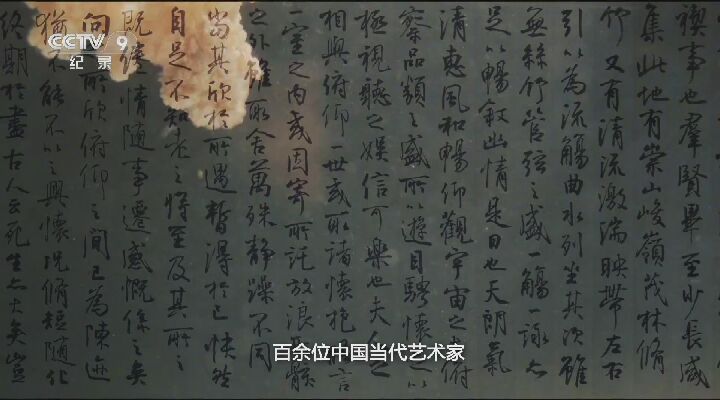 CCTV 9
纪录
禊事也羣賢畢至少長咸
集此地有崇山峻嶺茂林脩
竹又有清流激湍映帶左右
引以為流觴曲水列坐其次雖
無絲竹管弦之盛一觴一詠亦
足以暢敘幽情是日也天朗氣
清惠風和暢仰觀宇宙之俯
察品類之盛所以遊目騁懷以
極視聽之娛信可樂也夫人之
相與俯仰一世或取諸懷抱言
一室之內或因寄所託放浪骸
之外雖取舍萬殊静躁不同
當其欣於所遇暫得於己快然
自足不知老之將至及其所之
既惓情隨事遷感慨係之矣
向之所欣俯仰之間已為陳迹
猶不能不以之興懷況脩短隨化
終期於盡古人云死生亦大矣豈
百余位中国当代艺术家